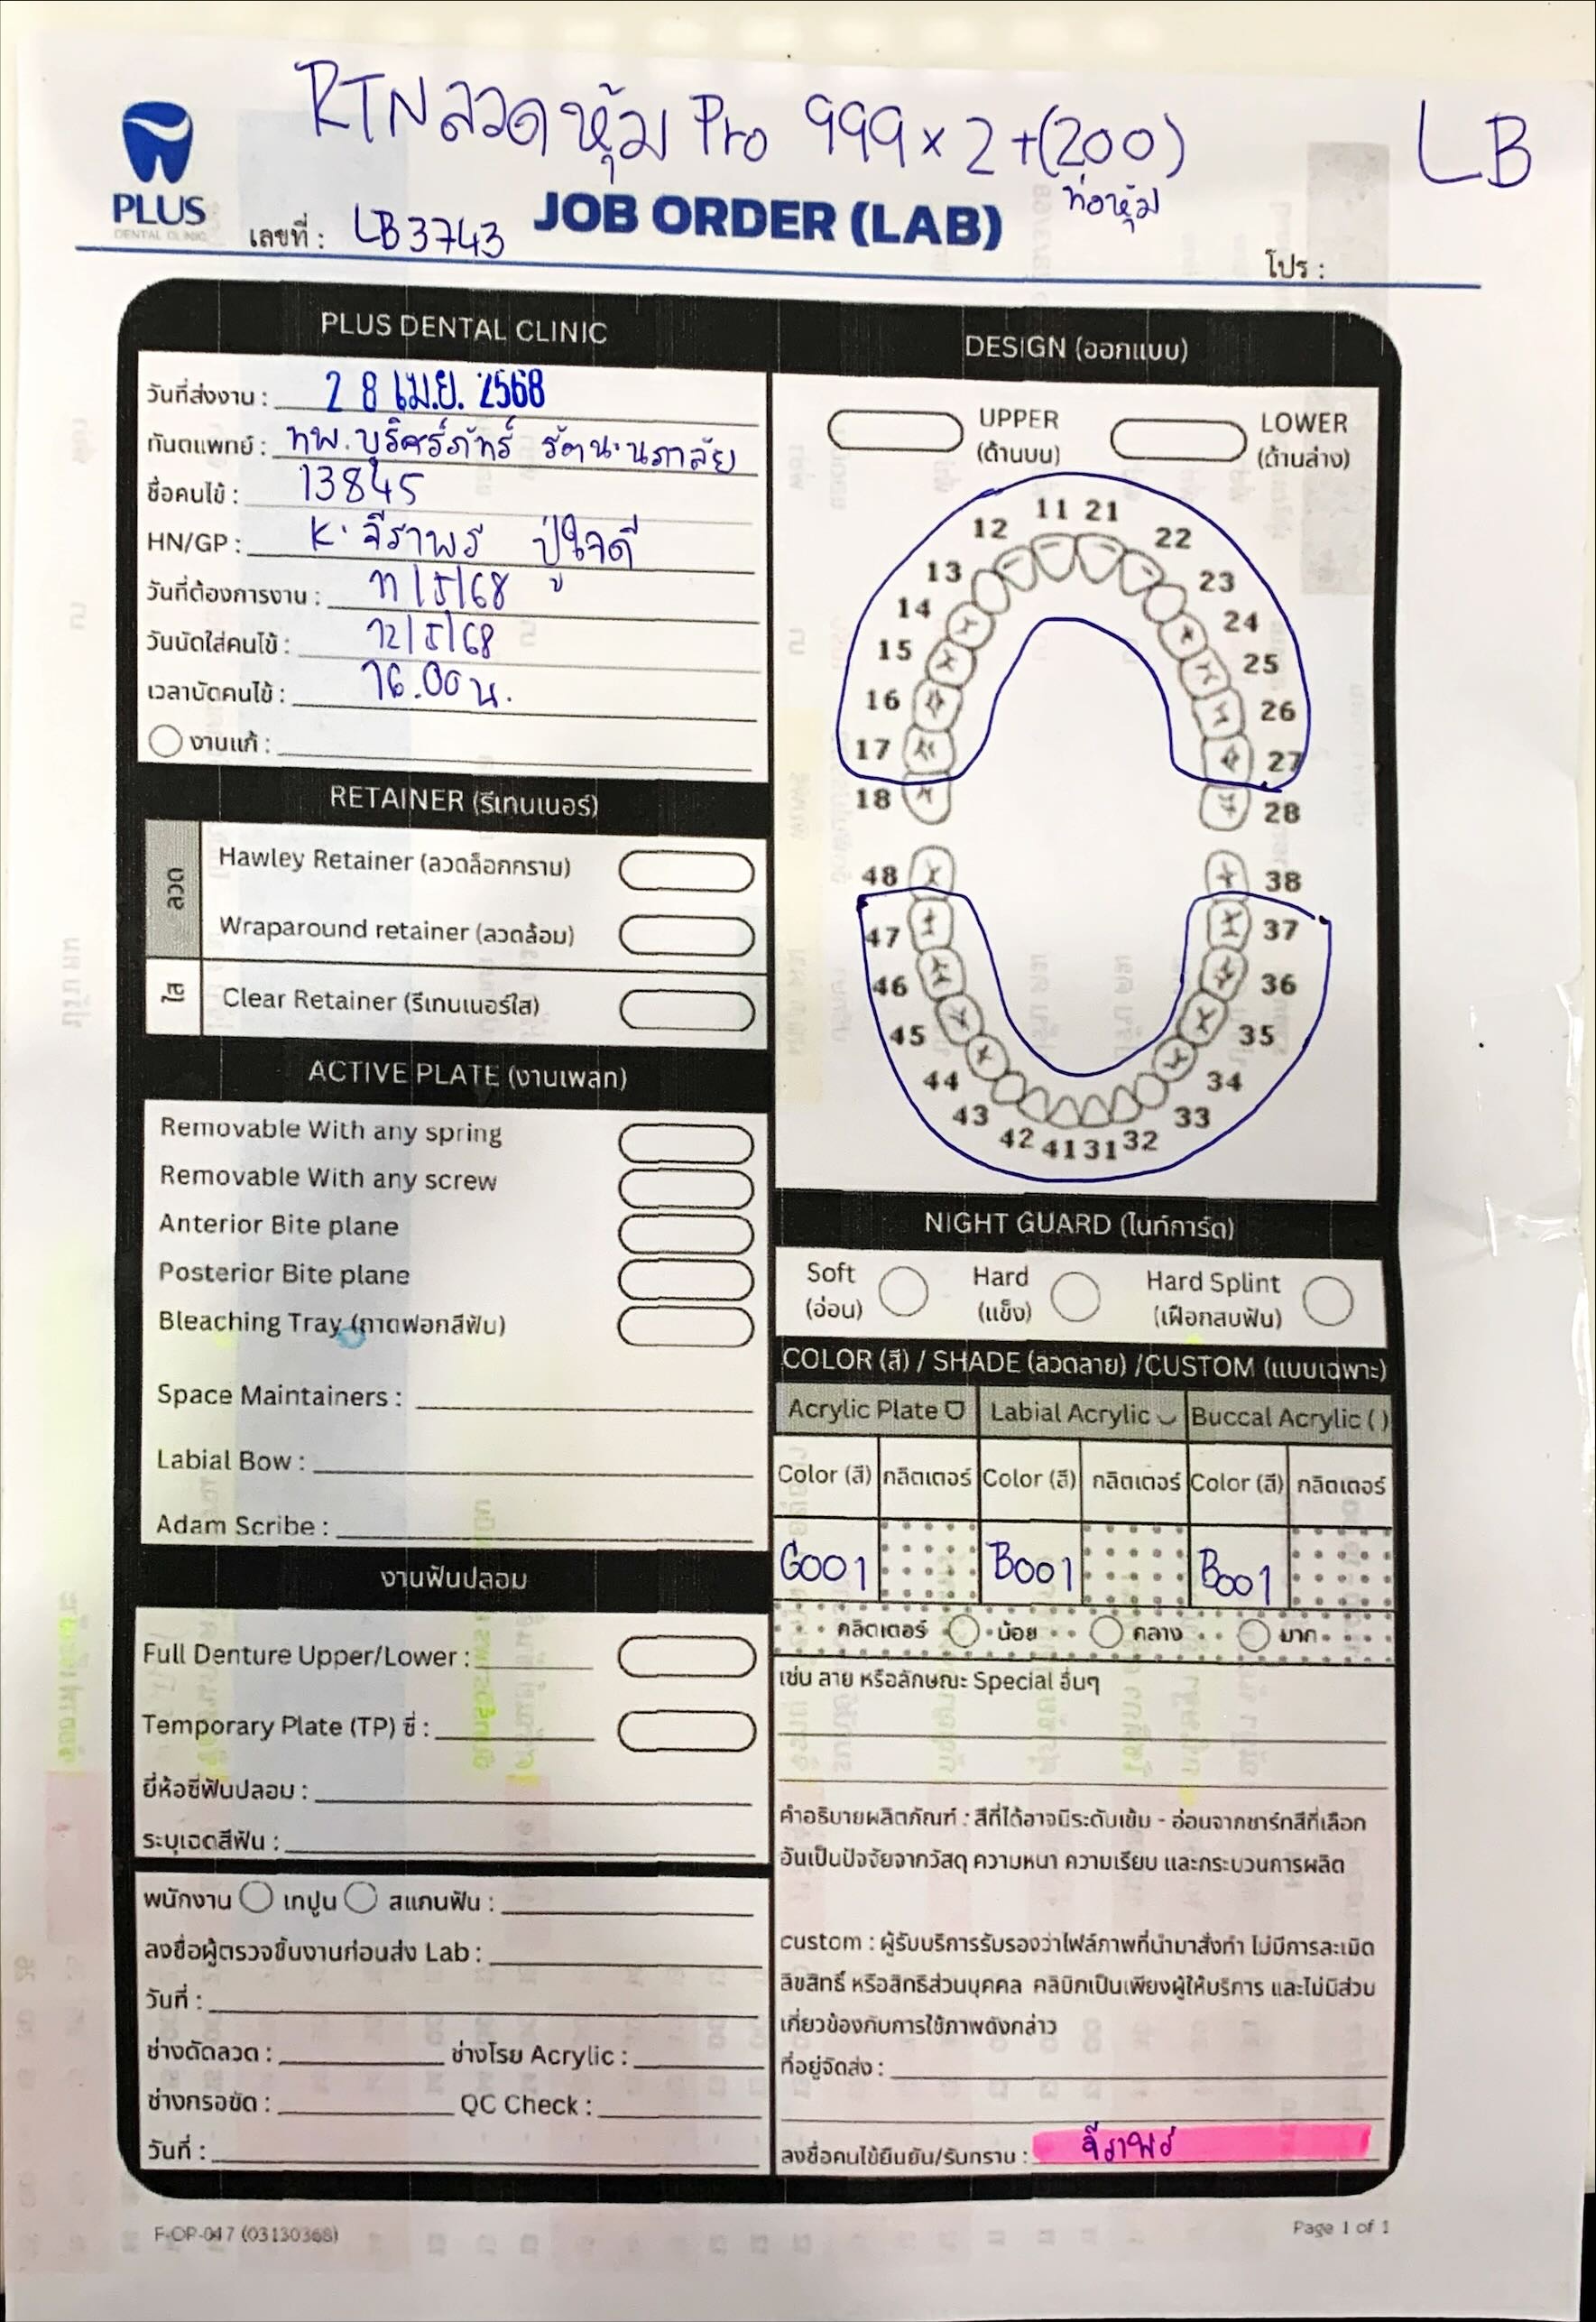 RTN ลวด หุ้ม Pro 999 x 2 +(200)
ท่อหุ้ม
LB
PLUS
DENTAL CLINIC
เลขที่ : LB3743
JOB ORDER (LAB)
โปร :
PLUS DENTAL CLINIC
วันที่ส่งงาน : 28 เม.ย. 2568
ทันตแพทย์ : ทพ.บุริศร์ภัทร์ รัตนะนภาลัย
ชื่อคนไข้ : 13845
HN/GP : K. จีราพร ปู่ใจดี
วันที่ต้องการงาน : 11/5/68
วันนัดใส่คนไข้ : 12/5/68
เวลานัดคนไข้ : 16.00 น.
งานแก้ :
RETAINER (รีเทนเนอร์)
ลวด
Hawley Retainer (ลวดล็อกกราม)
Wraparound retainer (ลวดล้อม)
ใส
Clear Retainer (รีเทนเนอร์ใส)
ACTIVE PLATE (งานเพลท)
Removable With any spring
Removable With any screw
Anterior Bite plane
Posterior Bite plane
Bleaching Tray (ถาดฟอกสีฟัน)
Space Maintainers :
Labial Bow :
Adam Scribe :
งานฟันปลอม
Full Denture Upper/Lower :
Temporary Plate (TP) ซี่ :
ยี่ห้อซี่ฟันปลอม :
ระบุเฉดสีฟัน :
พนักงาน เทปูน สแกนฟัน :
ลงชื่อผู้ตรวจชิ้นงานก่อนส่ง Lab :
วันที่ :
ช่างดัดลวด : ช่างโรย Acrylic :
ช่างกรอขัด : QC Check :
วันที่ :
DESIGN (ออกแบบ)
UPPER (ด้านบน)
LOWER (ด้านล่าง)
11 21
12 22
13 23
14 24
15 25
16 26
17 27
18 28
48 38
47 37
46 36
45 35
44 34
43 33
42 41 31 32
NIGHT GUARD (ไนท์การ์ด)
Soft (อ่อน)
Hard (แข็ง)
Hard Splint (เฝือกสบฟัน)
COLOR (สี) / SHADE (ลวดลาย) /CUSTOM (แบบเฉพาะ)
Acrylic Plate Labial Acrylic Buccal Acrylic ( )
Color (สี) กลิตเตอร์ Color (สี) กลิตเตอร์ Color (สี) กลิตเตอร์
G001 B001 B001
กลิตเตอร์ น้อย กลาง มาก
เช่น ลาย หรือลักษณะ Special อื่นๆ
คำอธิบายผลิตภัณฑ์ : สีที่ได้อาจมีระดับเข้ม - อ่อนจากชาร์ทสีที่เลือก
อันเป็นปัจจัยจากวัสดุ ความหนา ความเรียบ และกระบวนการผลิต
custom : ผู้รับบริการรับรองว่าไฟล์ภาพที่นำมาสั่งทำ ไม่มีการละเมิด
ลิขสิทธิ์ หรือสิทธิส่วนบุคคล คลินิกเป็นเพียงผู้ให้บริการ และไม่มีส่วน
เกี่ยวข้องกับการใช้ภาพดังกล่าว
ที่อยู่จัดส่ง :
ลงชื่อคนไข้ยืนยัน/รับทราบ : จีราพร
F-OP-047 (03130368)
Page 1 of 1